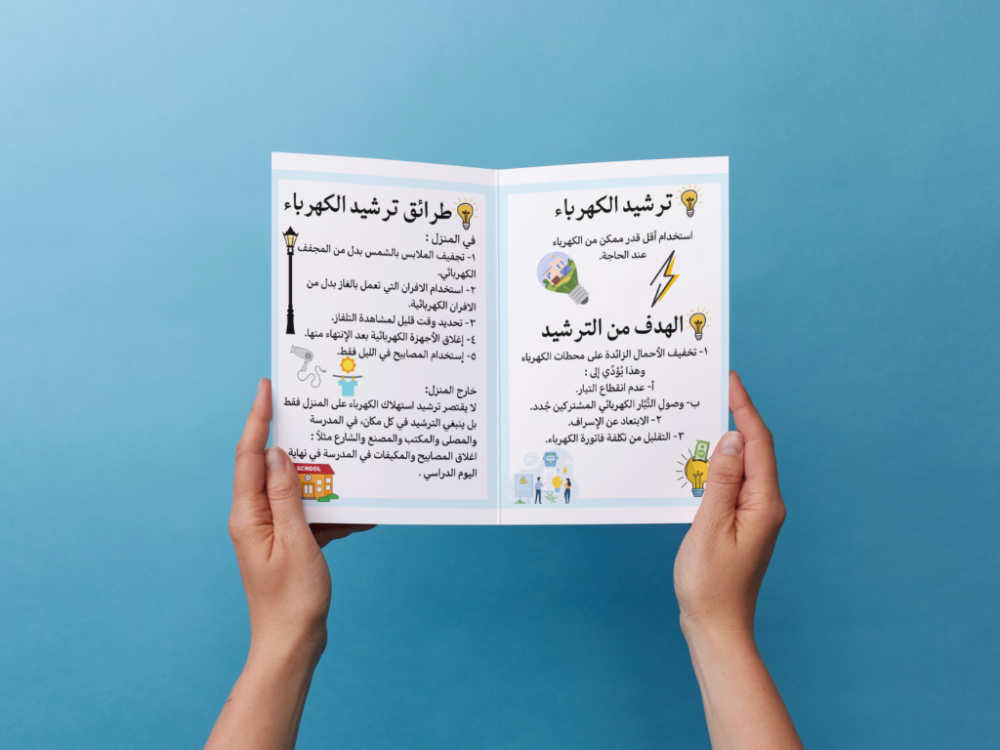 ترشيد الكهرباء
استخدام أقل قدر ممكن من الكهرباء
عند الحاجة.
الهدف من الترشيد
١- تخفيف الأحمال الزائدة على محطات الكهرباء
وهذا يُؤدَّي إلى :
أ- عدم انقطاع التيار.
ب- وصول التَّيَّار الكهربائي المشتركين جُدد.
٢- الابتعاد عن الإسراف.
٣- التقليل من تكلفة فاتورة الكهرباء.
طرائق ترشيد الكهرباء
في المنزل :
١- تجفيف الملابس بالشمس بدل من المجفف
الكهربائي.
٢- استخدام الافران التي تعمل بالغاز بدل من
الافران الكهربائية.
٣- تحديد وقت قليل لمشاهدة التلفاز.
٤- إغلاق الأجهزة الكهربائية بعد الإنتهاء منها.
٥- إستخدام المصابيح في الليل فقط.
خارج المنزل:
لا يقتصر ترشيد استهلاك الكهرباء على المنزل فقط
بل ينبغي الترشيد في كل مكان، في المدرسة
والمصلى والمكتب والمصنع والشارع مثلاً :
اغلاق المصابيح والمكيفات في المدرسة في نهاية
اليوم الدراسي .
SCHOOL